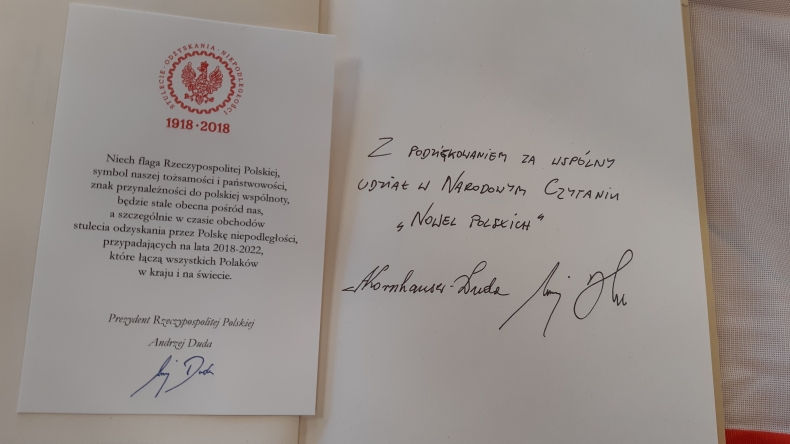 STULECIE · ODZYSKANIA · NIEPODLEGŁOŚCI
1918 · 2018
Niech flaga Rzeczypospolitej Polskiej,
symbol naszej tożsamości i państwowości,
znak przynależności do polskiej wspólnoty,
będzie stale obecna pośród nas,
a szczególnie w czasie obchodów
stulecia odzyskania przez Polskę niepodległości,
przypadających na lata 2018-2022,
które łączą wszystkich Polaków
w kraju i na świecie.
Prezydent Rzeczypospolitej Polskiej
Andrzej Duda
Duda
Z PODZIĘKOWANIEM ZA WSPÓLNY
UDZIAŁ W NARODOWYM CZYTANIU
„NOWEL POLSKICH"
Kornhauser-Duda